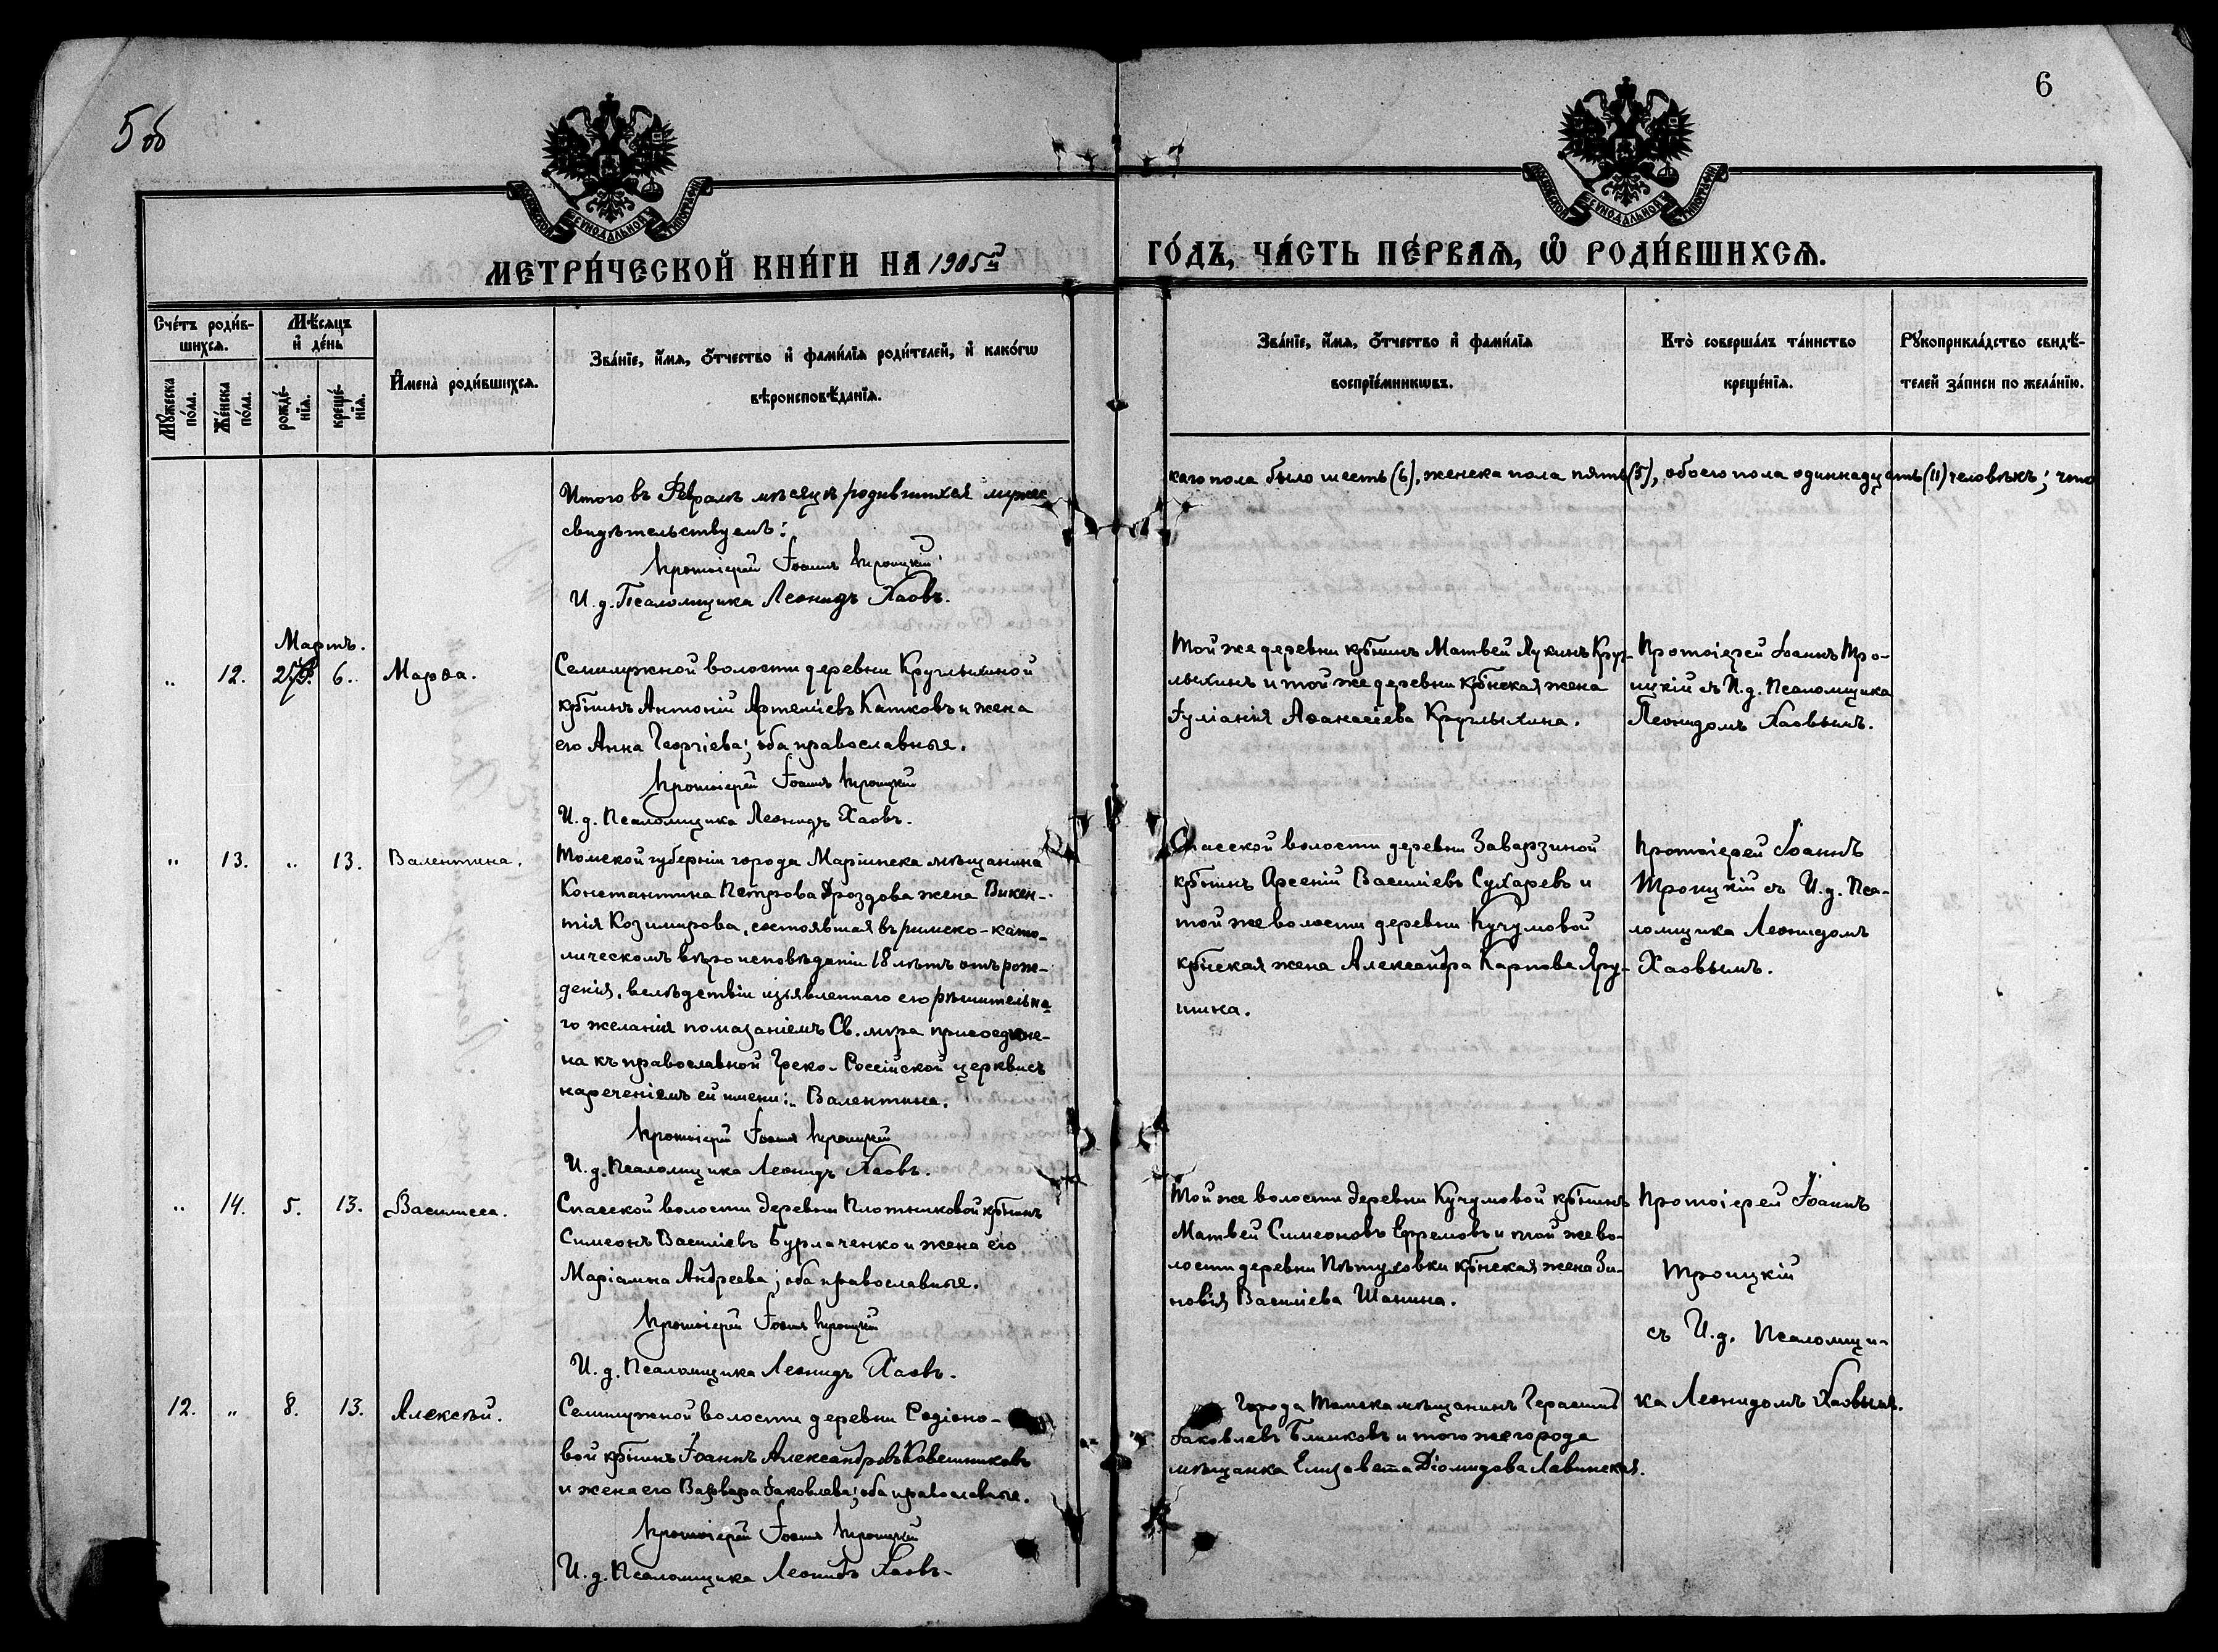 5 об
6
МЕТРИ́ЧЕСКОЙ КНИ́ГИ НА 1905й
ГО́ДЪ, ЧА́СТЬ ПЕ́РВАѦ, Ѿ РОДИ́ВШИХСѦ.
Сче́тъ роди́в-
шихсѧ.
Мѣ́сѧцъ
и҆ де́нь
Мꙋ́жеска
по́ла.
Же́нска
по́ла.
рожде́-
нїѧ.
креще́-
нїѧ.
И҆мена̀ роди́вшихсѧ.
Зва́нїе, и҆́мѧ, ѻ҆́тчество и҆ фами́лїѧ роди́телей, и҆ како́гѡ
вѣроисповѣ́данїѧ.
Зва́нїе, и҆́мѧ, ѻ҆́тчество и҆ фами́лїѧ
воспрїе́мникѡвъ.
Кто̀ соверша́лъ та́инство
креще́нїѧ.
Рꙋкоприкла́дство свидѣ́-
телей за́писи по жела́нїю.
Итого въ Февралѣ мѣсяцѣ родившихся мужес
каго пола было шесть (6), женска пола пять (5), обоего пола одиннадцать (11) человѣкъ; что
свидѣтельствуемъ:
Протоіерей Іоаннъ Троицкій
И. д. Псаломщика Леонидъ Хаовъ.
Мартъ.
„ 12. 6. Марѳа.
Семилужной волости деревни Круглыхиной
кр̃нинъ Антоній Артеміевъ Катковъ и жена
его Анна Георгіева; оба православные.
Протоіерей Іоаннъ Троицкій
И. д. Псаломщика Леонидъ Хаовъ.
Той же деревни кр̃нинъ Матвей Лукинъ Круг-
лыхинъ и той же деревни кр̃нская жена
Іуліанія Аѳанасіева Круглыхина.
Протоіерей Іоаннъ Тро-
ицкій съ И. д. Псаломщика
Леонидомъ Хаовымъ.
„ 13. „ 13. Валентина.
Томской губерніи города Маріинска мѣщанина
Константина Петрова Дроздова жена Викен-
тія Козимирова, состоявшая въ римско-като-
лическомъ вѣроисповѣданіи 18 лѣтъ отъ рож-
денія, вслѣдствіи изъявленнаго его рѣшительна
го желанія помазаніемъ Св. мѵра присоедине-
на къ православной Греко-Россійской церкви съ
нареченіемъ ей имени: „Валентина.
Протоіерей Іоаннъ Троицкій
И. д. Псаломщика Леонидъ Хаовъ.
Спасской волости деревни Заварзиной
кр̃нинъ Арсеній Василіевъ Сухаревъ и
той же волости деревни Кучумовой
кр̃нская жена Александра Карпова Яру-
шина.
Протоіерей Іоаннъ
Троицкій съ И. д. Пса-
ломщика Леонидомъ
Хаовымъ.
„ 14. 5. 13. Василисса.
Спасской волости деревни Плотниковой кр̃нинъ
Симеонъ Василіевъ Бурлаченко и жена его
Маріамна Андреева; оба православные.
Протоіерей Іоаннъ Троицкій
И. д. Псаломщика Леонидъ Хаовъ.
Той же волости деревни Кучумовой кр̃нинъ
Матвей Симеоновъ Ефремовъ и той же во-
лости деревни Пѣтуховки кр̃нская жена Зи-
новія Василіева Шанина.
Протоіерей Іоаннъ
Троицкій
съ И. д. Псаломщи-
ка Леонидомъ Хаовымъ.
12. „ 8. 13. Алексѣй.
Семилужной волости деревни Родіоно-
вой кр̃нинъ Іоаннъ Александровъ Кавешниковъ
и жена его Варвара Іаковлева; оба православные.
Протоіерей Іоаннъ Троицкій
И. д. Псаломщика Леонидъ Хаовъ.
Города Томска мѣщанинъ Герасимъ
Іаковлевъ Блинковъ и того же города
мѣщанка Елизавета Діомидова Лавинская.